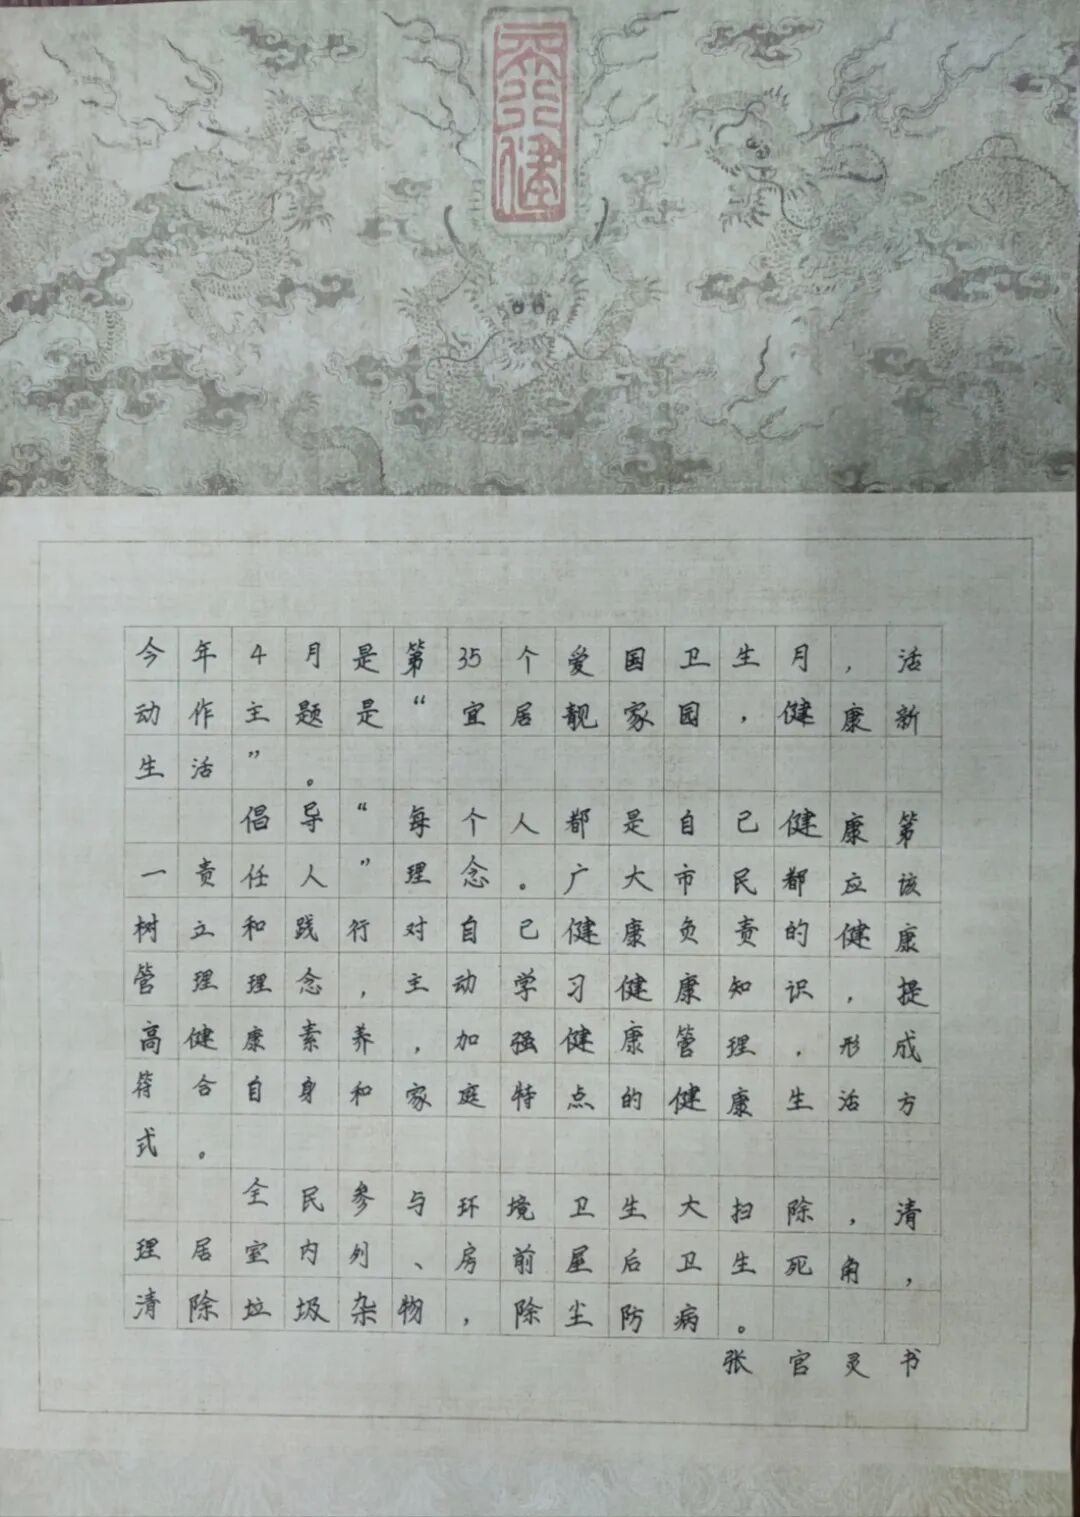 天行健
今年4月是第35个爱国卫生月,活
动作主题是“宜居靓家园,健康新
生活”。
倡导“每个人都是自己健康第
一责任人”理念。广大市民都应该
树立和践行对自己健康负责的健康
管理理念,主动学习健康知识,提
高健康素养,加强健康管理,形成
符合自身和家庭特点的健康生活方
式。
全民参与环境卫生大扫除,清
理居室内列、房前屋后卫生死角,
清除垃圾杂物,除尘防病。
张官灵书